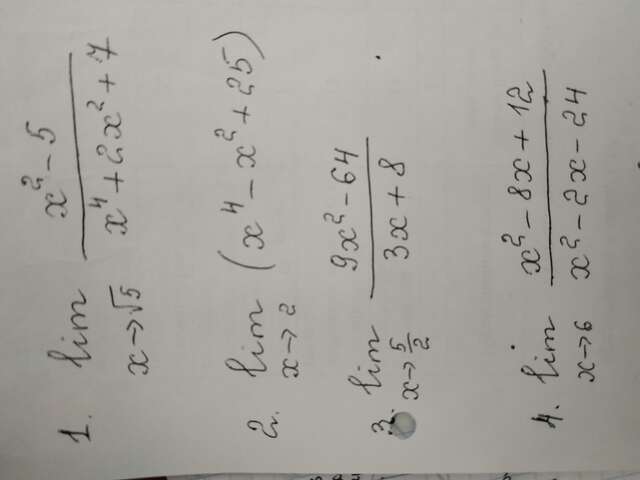 1. lim x→√5 (x² - 5)/(x⁴ + 2x² + 7)
2. lim x→2 (x⁴ - x² + 25)
3. lim x→5/2 (9x² - 64)/(3x + 8)
4. lim x→6 (x² - 8x + 12)/(x² - 2x - 24)